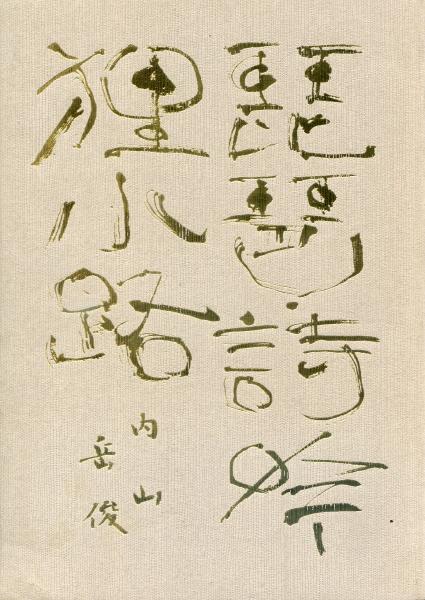 琵琶詩
狸小路
内山
岳俊